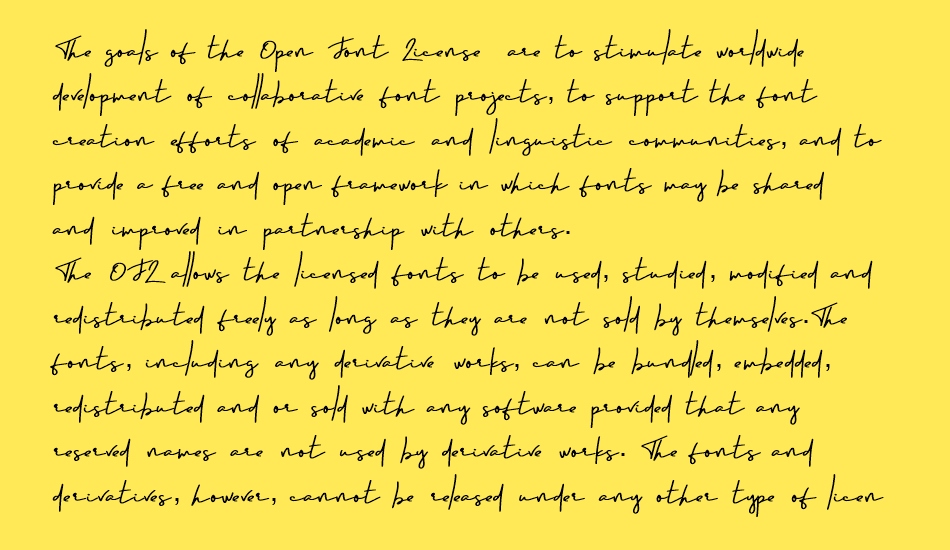 The goals of the Open Font License are to stimulate worldwide
development of collaborative font projects, to support the font
creation efforts of academic and linguistic communities, and to
provide a free and open framework in which fonts may be shared
and improved in partnership with others.
The OFL allows the licensed fonts to be used, studied, modified and
redistributed freely as long as they are not sold by themselves.The
fonts, including any derivative works, can be bundled, embedded,
redistributed and or sold with any software provided that any
reserved names are not used by derivative works. The fonts and
derivatives, however, cannot be released under any other type of licen